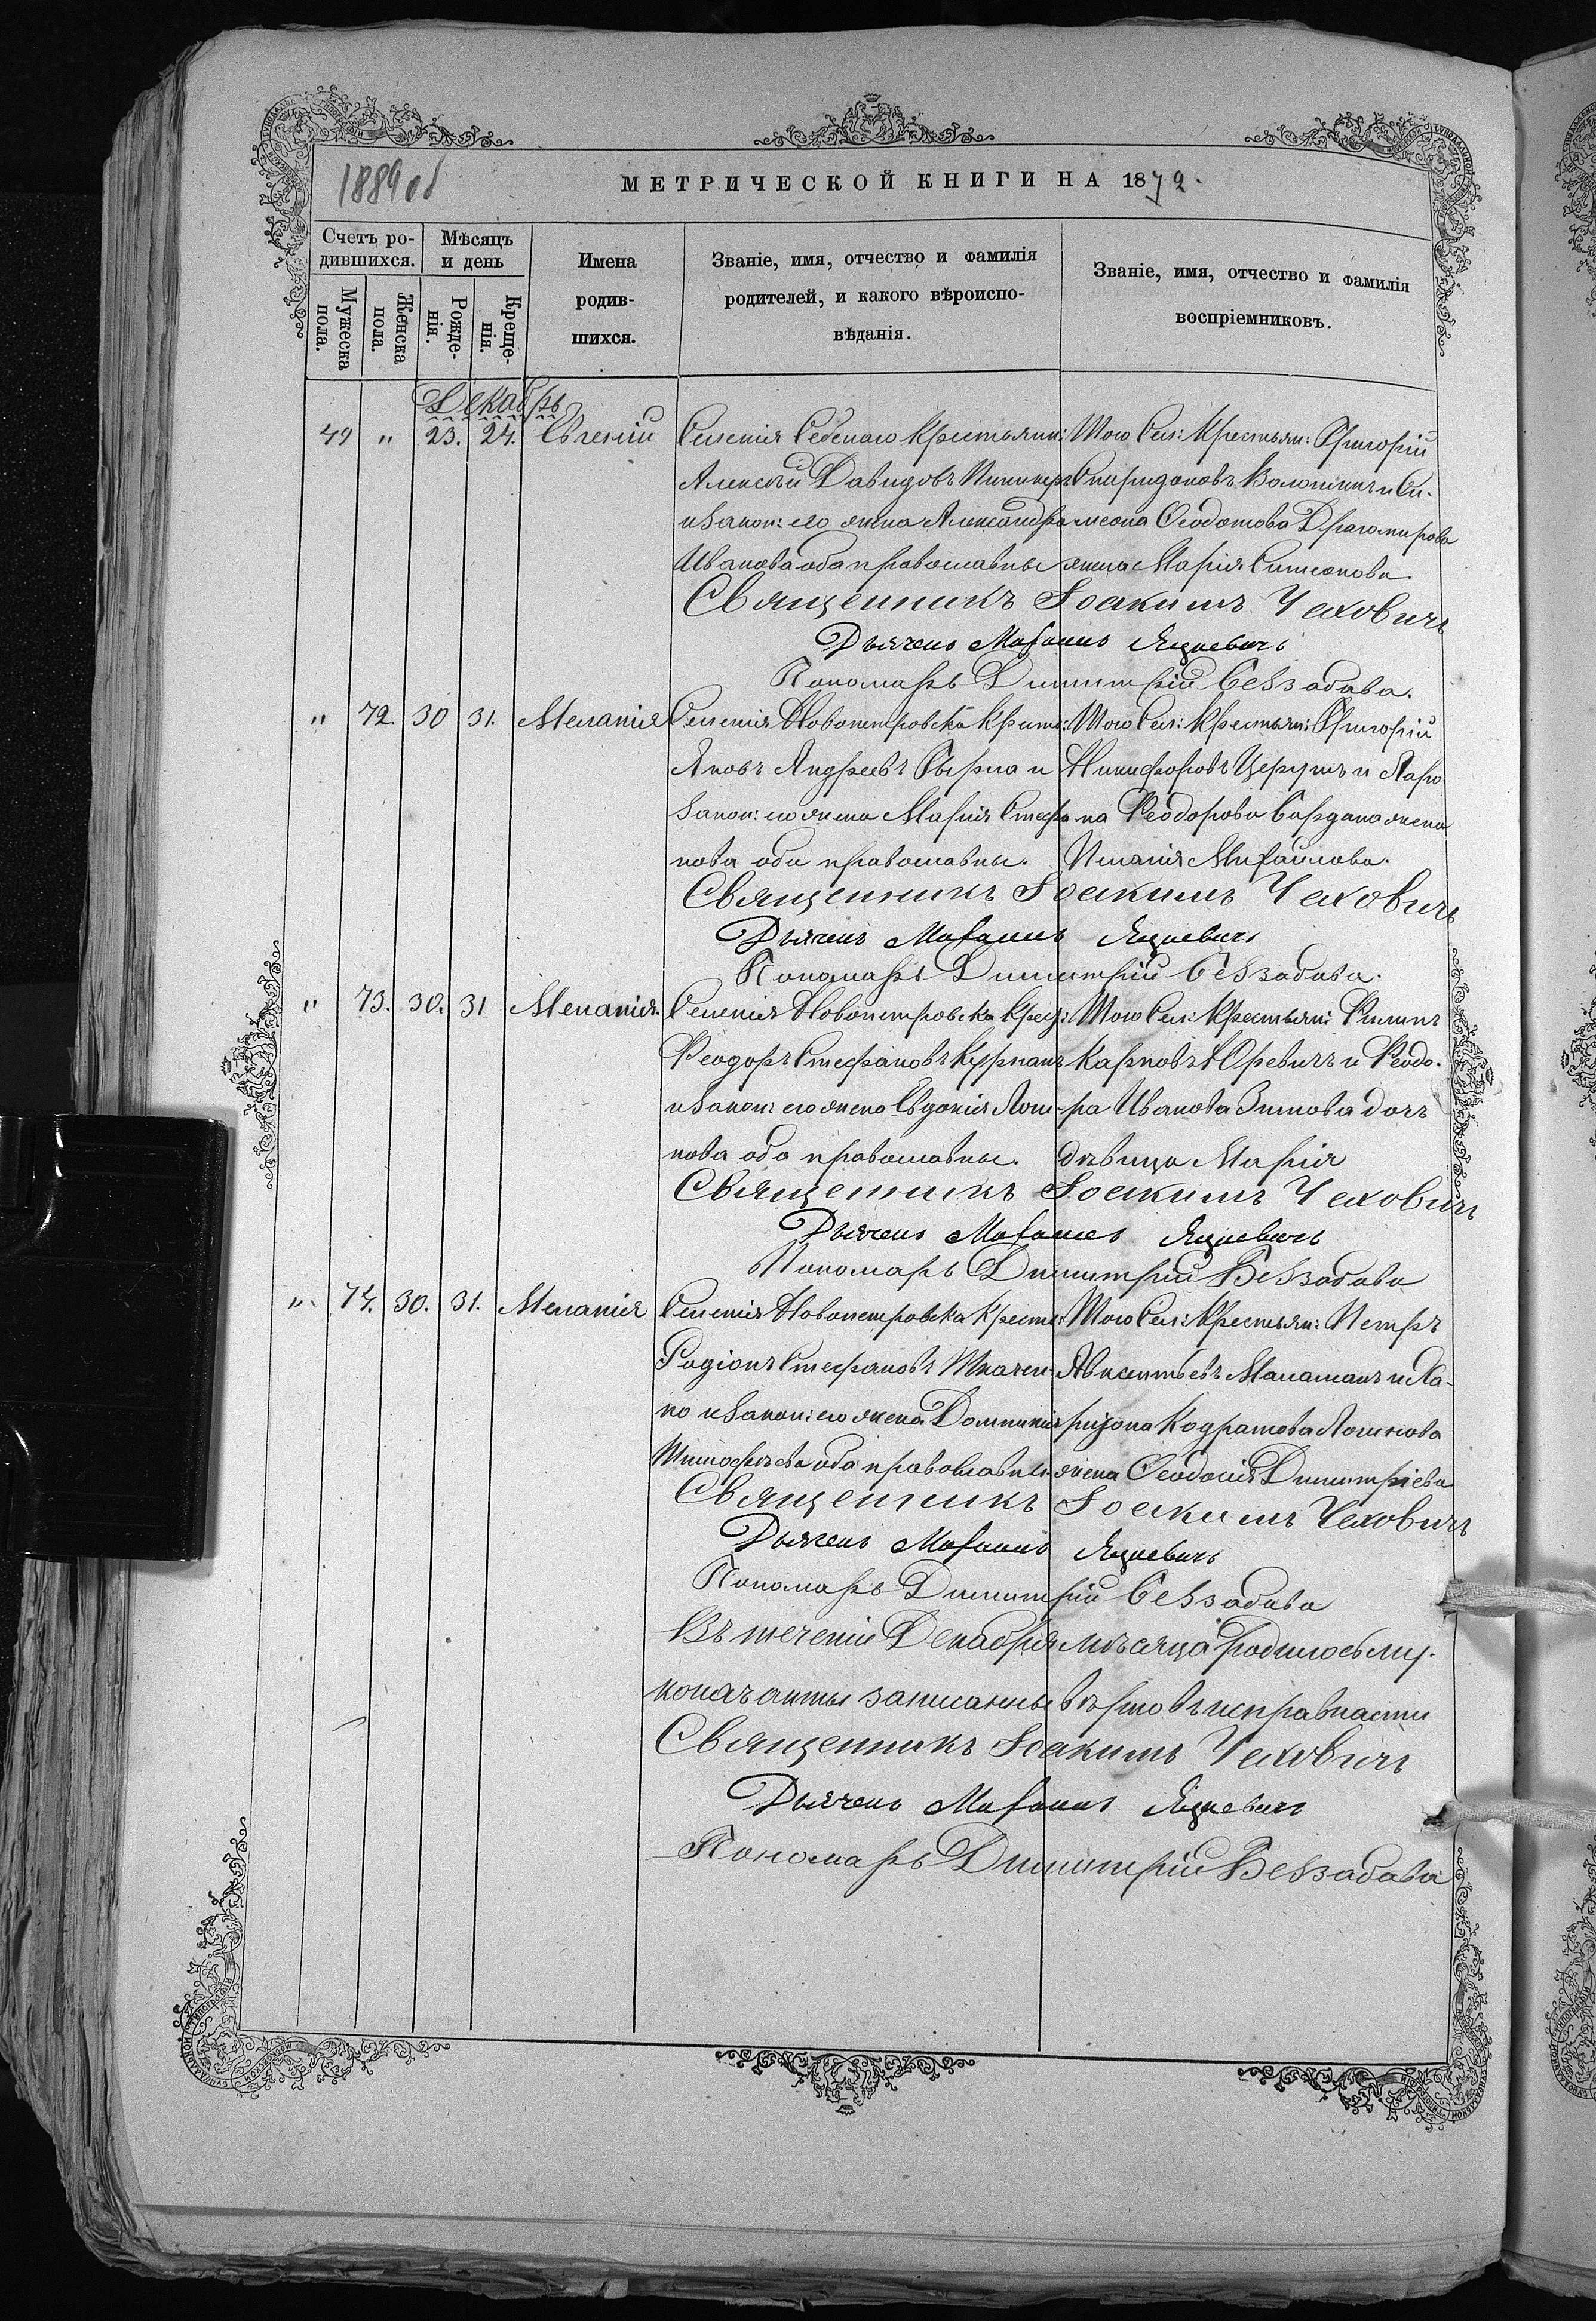 1889 об
МЕТРИЧЕСКОЙ КНИГИ НА 1872.
Счетъ ро-
дившихся.
Мѣсяцъ
и день
Мужеска
пола.
Женска
пола.
Рожде-
нія.
Креще-
нія.
Имена
родив-
шихся.
Званіе, имя, отчество и фамилія
родителей, и какого вѣроиспо-
вѣданія.
Званіе, имя, отчество и фамилія
воспріемниковъ.
Декабрь
49 " 23. 24. Евгеній
Селенія крестьянин:
Алексѣй Давидовъ
и закон: его жена Александра
Иванова оба православны
Того Сел: Крестьян: Григорій
Спиридоновъ Волошинъ и Си-
меона Ѳеодотова Драгомирова
жена Марія Симеонова.
Священникъ Іоакимъ Чахович
Дьячекъ Яцкевичъ
Пономарь Димитрій Беззабава.
" 72. 30 31. Меланія
Селенія Новопетровска Крест:
Яковъ Андреевъ и
закон: его жена Марія Стефа
нова оба православны.
Того Сел: Крестьян: Григорій
Никифоровъ иЛаро
на Ѳеодорова жена
Михайлова.
Священникъ Іоакимъ Чаховичъ
Дьячекъ Яцкевичъ
Пономарь Димитрій Беззабава.
" 73. 30. 31 Меланія.
Селенія Новопетровска Крес:
Ѳеодоръ Стефановъ
и закон: его жена Евдокія Лон-
нова оба православны.
Того Сел: Крестьян: Филипъ
Карповъ Юревичъ и Ѳеодо-
ра Иванова Зимова дочь
дѣвица Марія
Священникъ Іоакимъ Чаховичъ
Дьячекъ Яцкевичъ
Пономарь Димитрій Беззабава
". 74. 30. 31. Меланія
Селенія Новопетровска Крест:
Родіонъ Стефановъ Ткачен-
ко и закон: его жена Домникія
Тимофѣева оба православны
Того Сел: Крестьян: Петръ
Авксентьевъ и Ла-
ріона Кодратова Логинова
жена Ѳеодосія Димитріева
Священникъ Іоакимъ Чаховичъ
Дьячекъ Яцкевичъ
Пономарь Димитрій Беззабава
Въ теченіи Декабря мѣсяца родилось
акты записанны вѣрно въ исправности
Священникъ Іоакимъ Чаховичъ
Дьячекъ Яцкевичъ
Пономарь Димитрій Беззабава